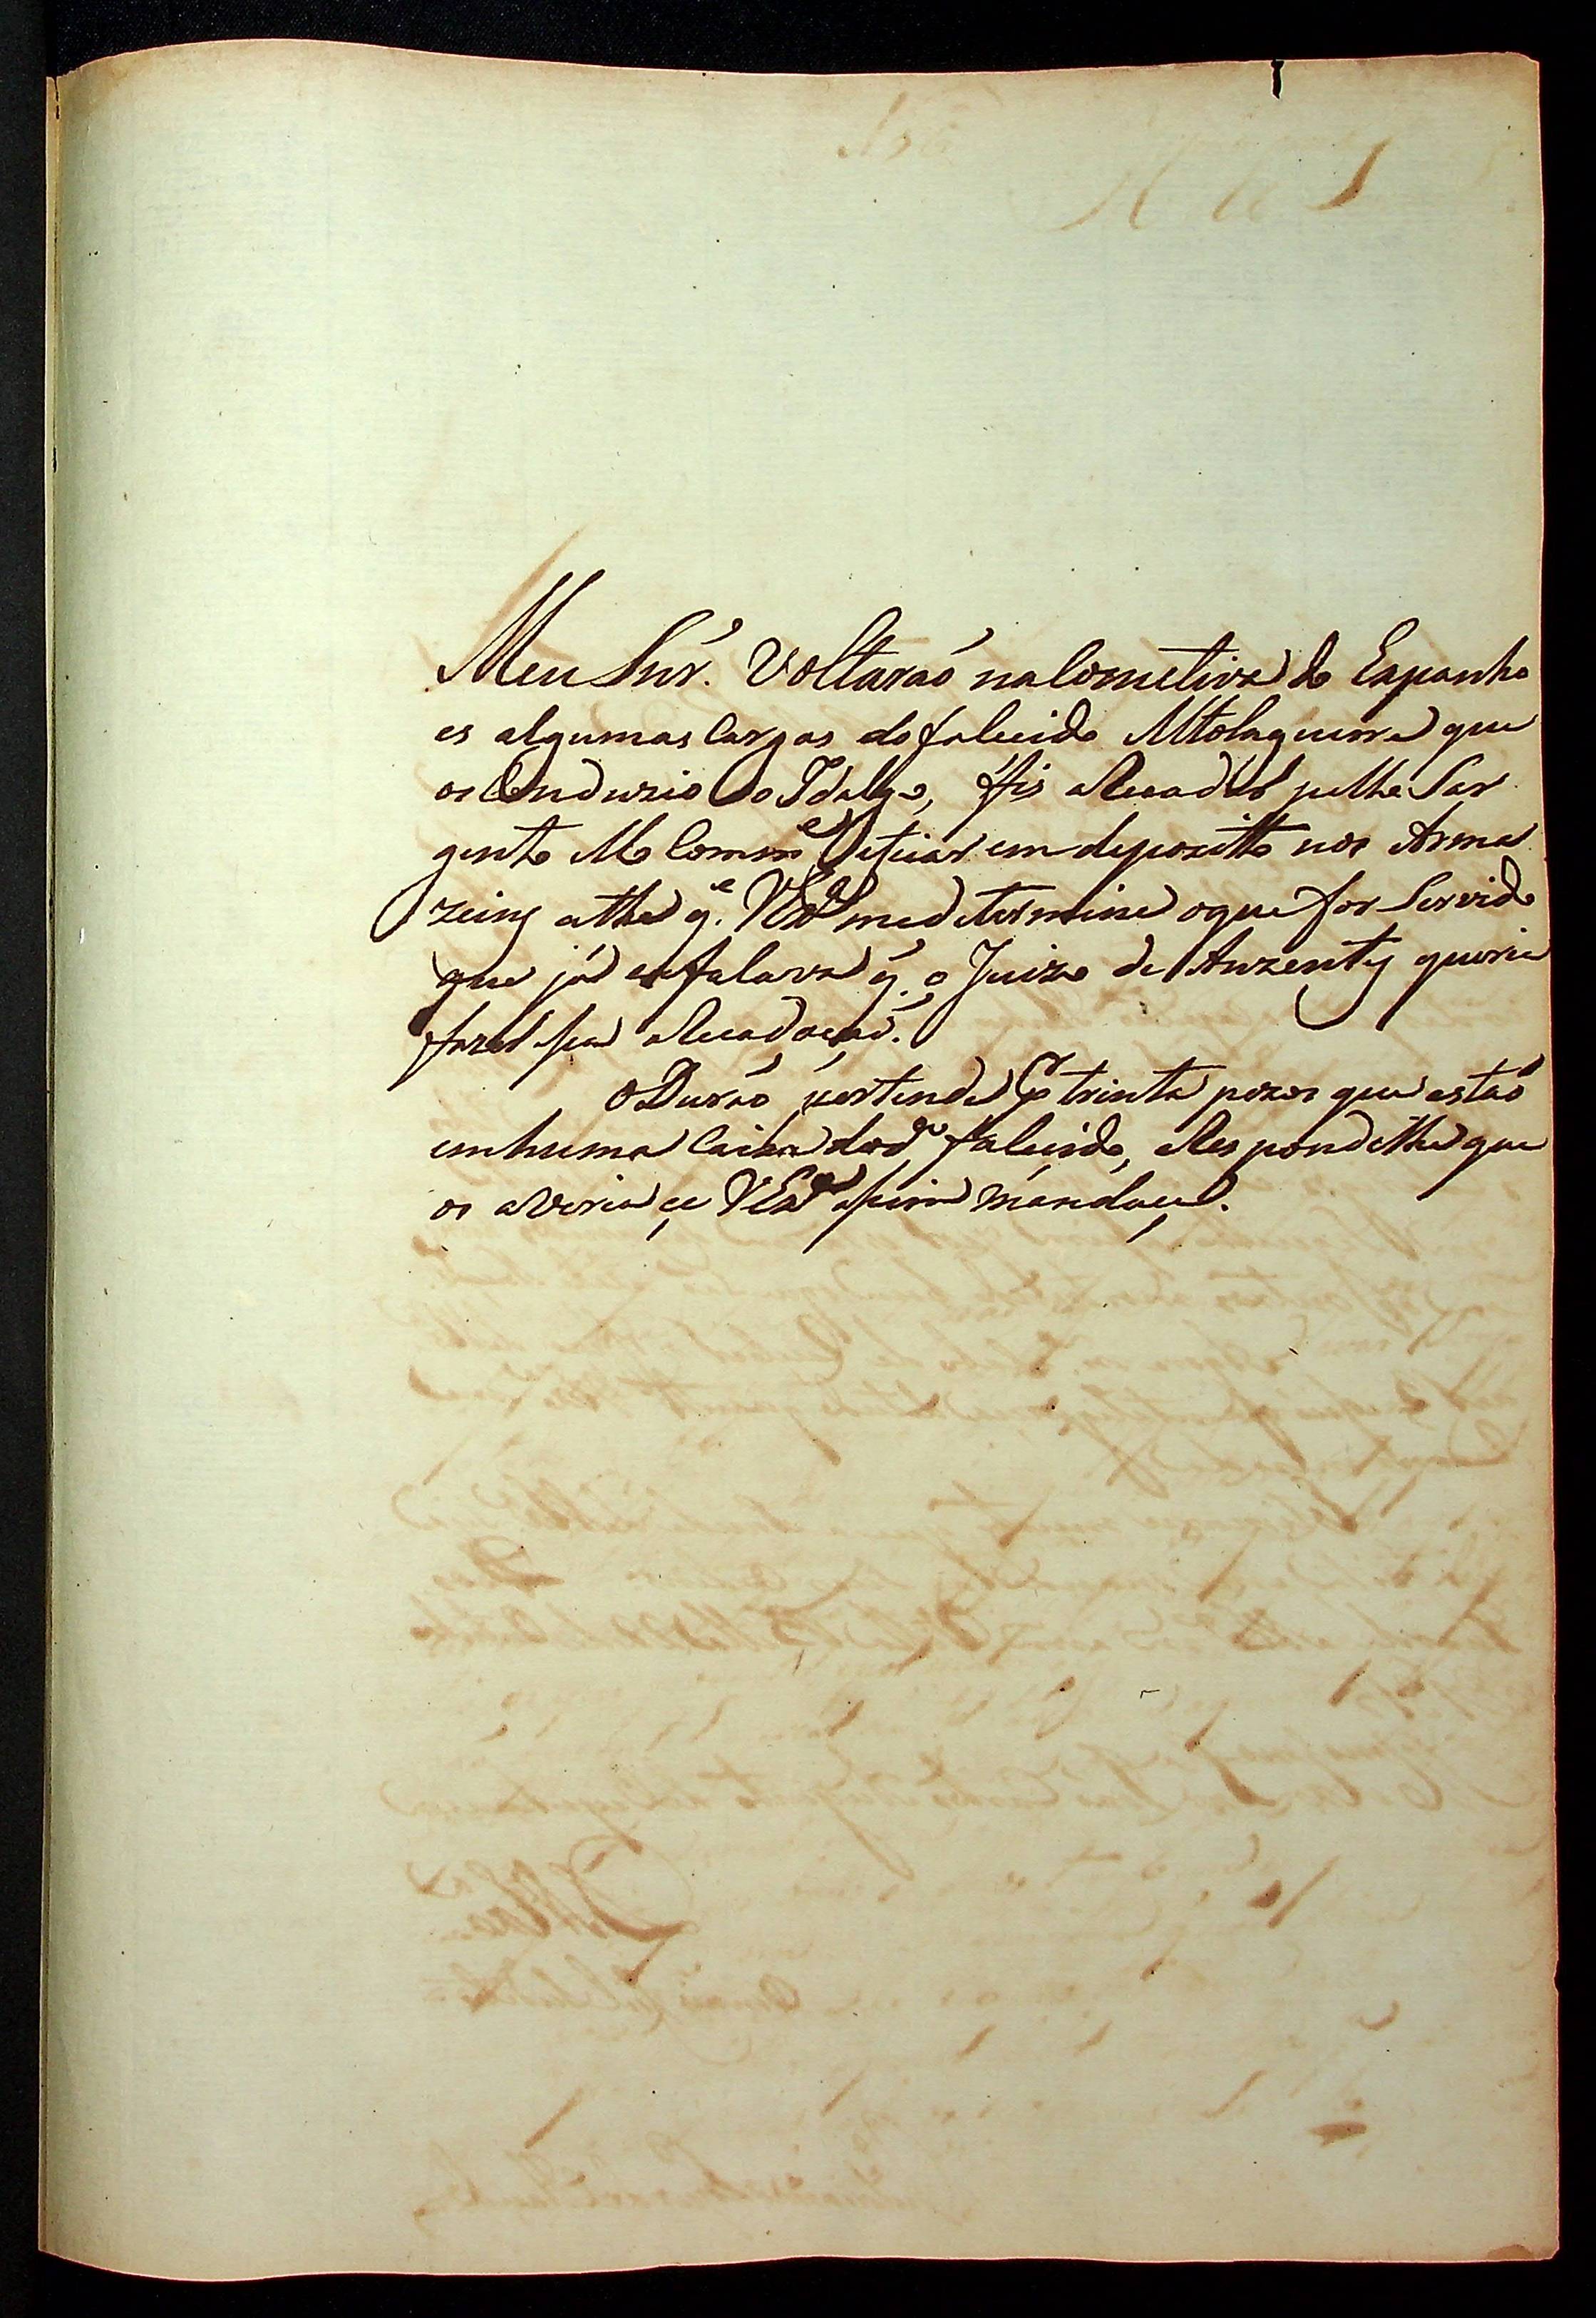 Meu Snr. Voltaraó na Cometiva de Espanho
es algumas Cargas do falecido que
os Conduzio o Idalgo, fis aRecadar pello Sar
gento Mor Comme e ficar em depozitto nos Arma
zeins athe q. VExa me determine o que for Servido
que já se falava q. o Juizo de Auzentes queria
fazer sua aRecadaçaó.
O Duraó pertende trinta pezos que estaó
em huma Caixa do do falecido, eRespondilhe que
os averia se VExa assim mandace.